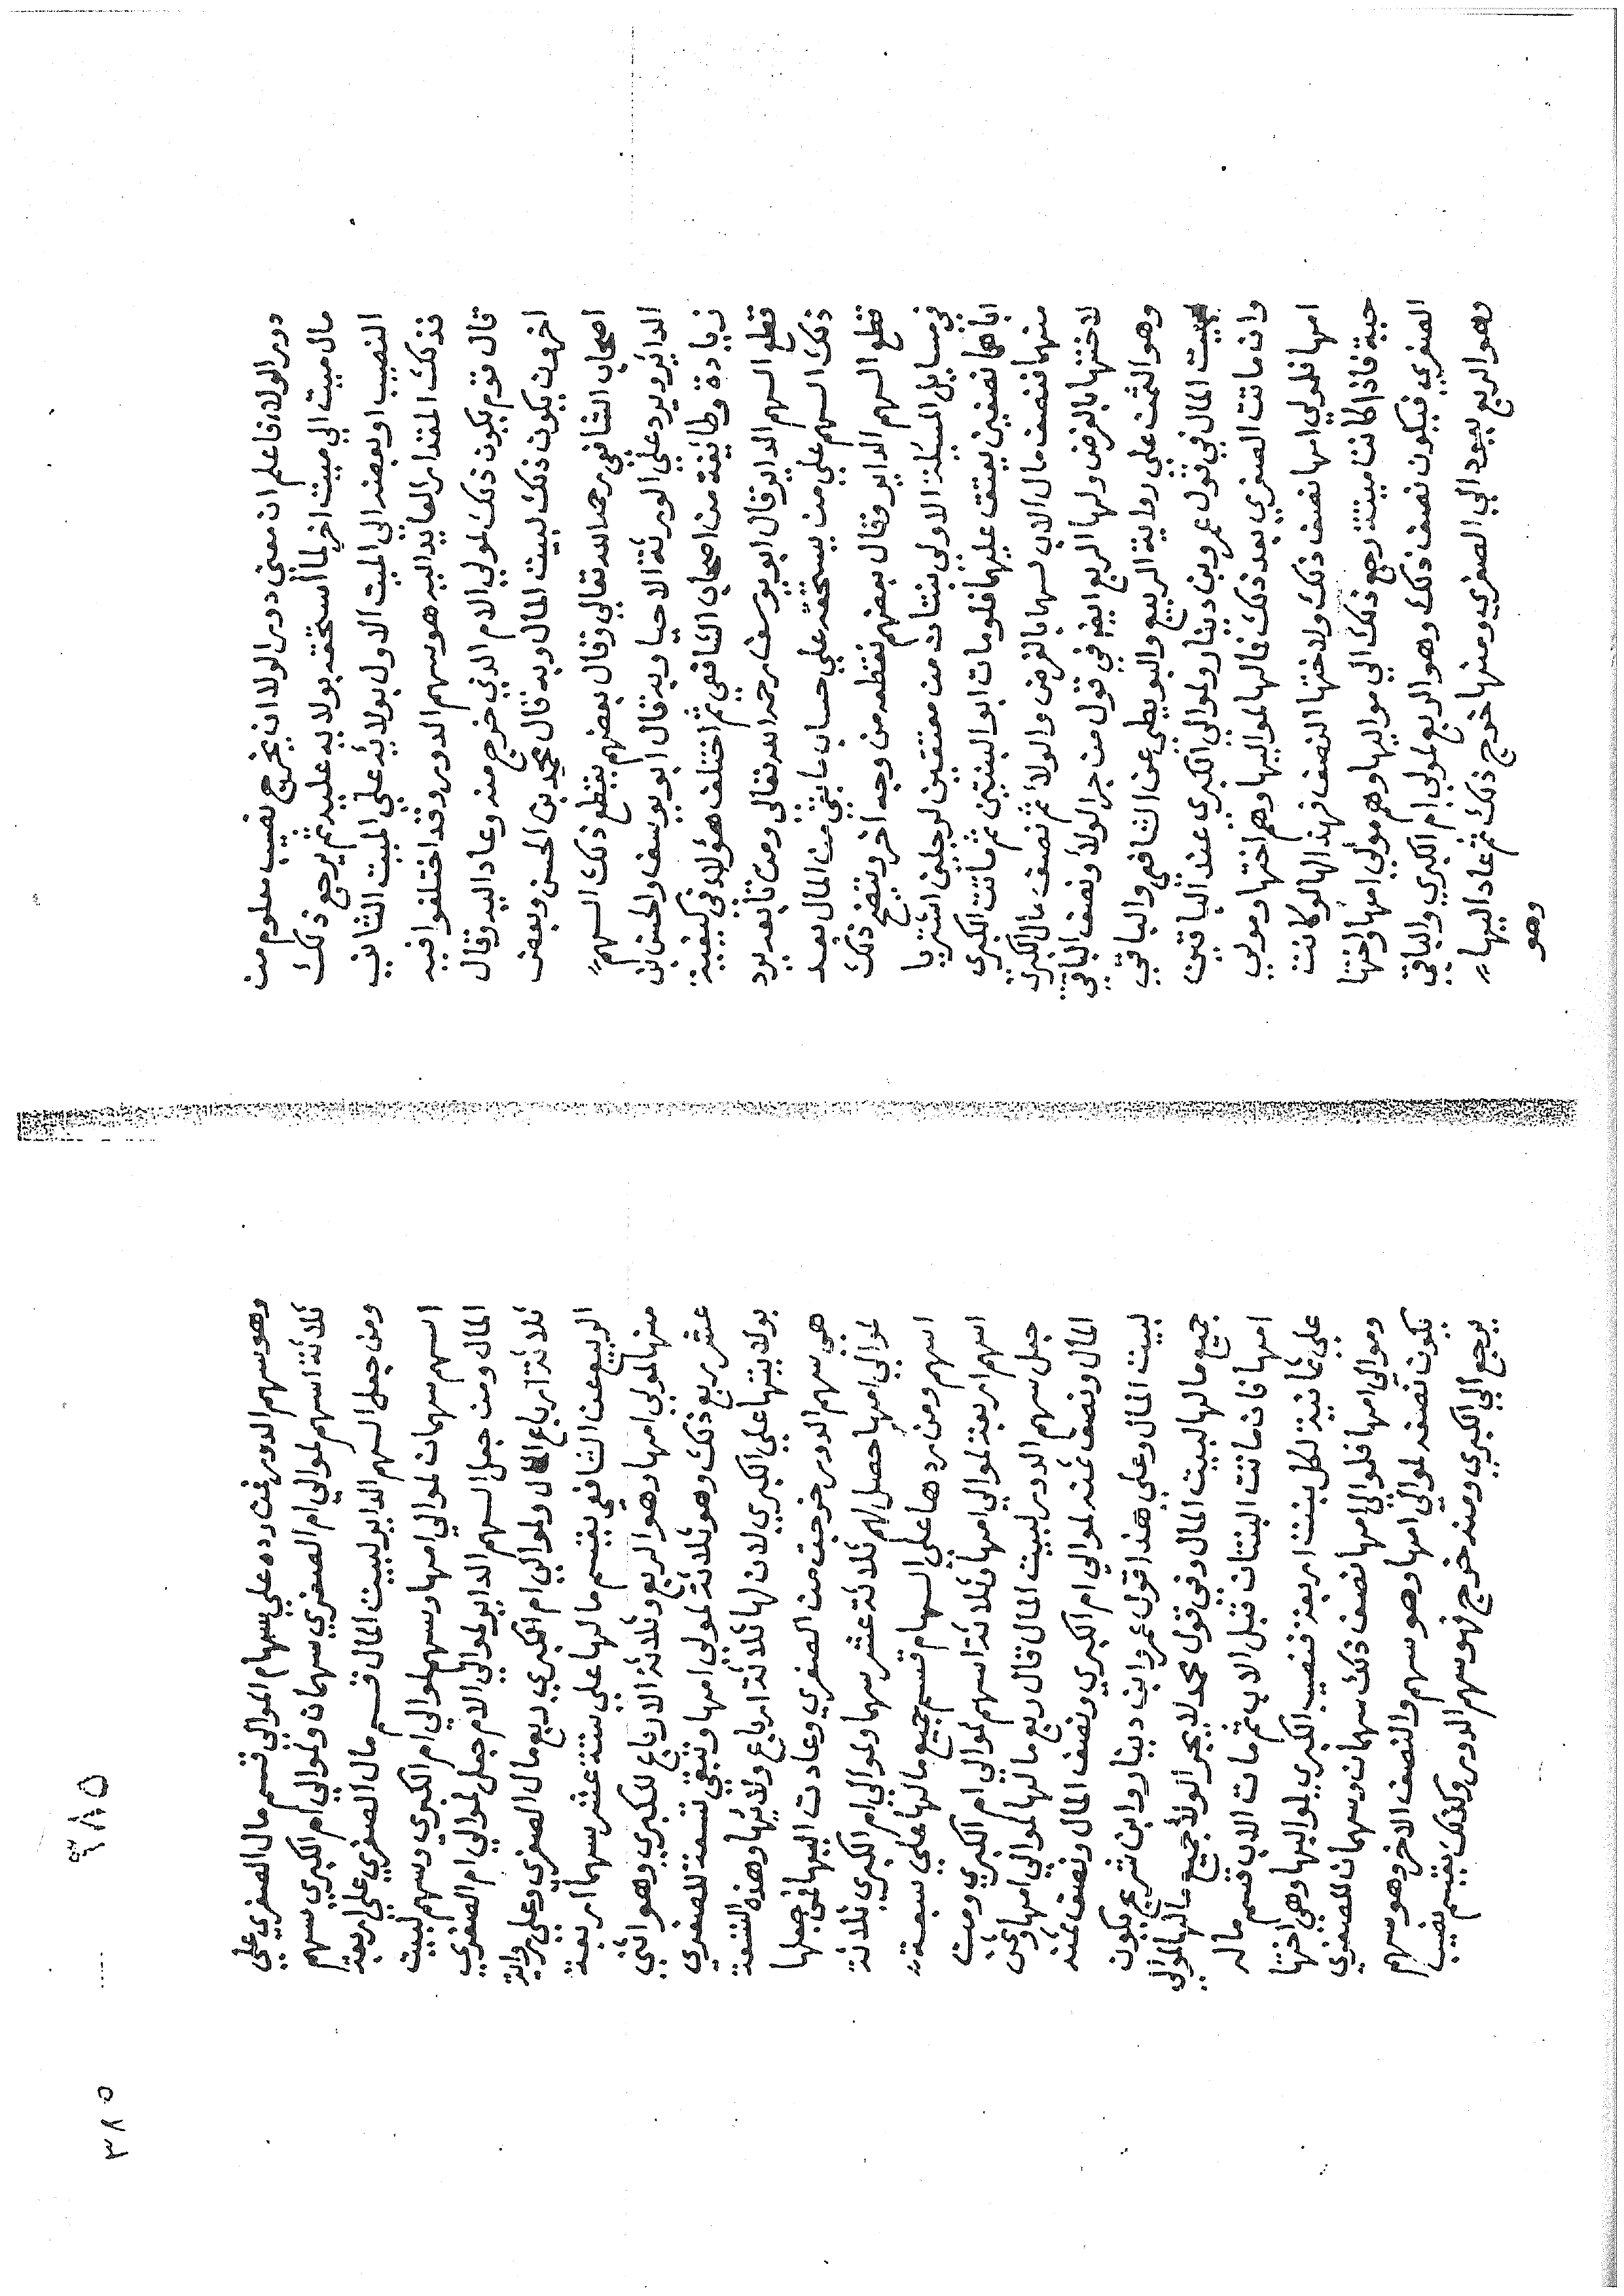 دور الولاء فاعلم ان معني دور الولا ان يخرج نصيب معلوم من
مال ميت الي ميت اخر لما استحقه بولايه عليه ثم يرجع ذلك
النصيب او بعضه الي الميت الاول بولايه علي الميت الثاني
فذلك المقدار العايد اليه هو سهم الدور وقد اختلفوا فيه
قال قوم يكون ذلك لموالي الام الذي خرج منه وعاد اليه وقال
اخرون يكون ذلك لبيت المال وبه قال محمد بن الحسن وبعض
اصحاب الشافعي رحمه الله تعالي وقال بعضهم يقطع ذلك السهم
الداير ويرد علي الورثة الاحيا وبه قال ابو يوسف والحسن بن
زيادة وطائفة من اصحاب الشافعي ثم اختلف هؤلاء في كيفية
قطع السهم الداير قال ابو يوسف رحمه الله تعالي ومن تابعه يرد
ذلك السهم علي من يستحقه علي حساب ما بقي من المال بعد
قطع السهم الداير وقال بعضهم نقطعه من وجه اخر ويتضح ذلك
في مسايل المسئلة الاولي بنتان من معتقين لرجلين اشتريا
اباهما نصفين يعتق عليهما فلو مات ابو البنتين ثم ماتت الكبري
منهما فنصف مال الاب لهما بالفرض والولاء ثم نصف مال الكبري
لاختها بالفرض ولها الربع ايضا في قول من جر الولاء ونصف الباقي
وهو الثمن علي رواية الربيع والبويطي عن الشافعي والباقي
لبيت المال في قول عمرو بن دينار ولموالي الكبري عند الباقين
وان ماتت الصغري بعد ذلك فمالها لمواليها وهم اختها ومولي
امها فلمولي امها نصف ذلك ولاختها النصف فهذا لها لو كانت
حية فاذا كانت ميتة رجع ذلك الي مواليها وهم مولي امها واختها
الصغري فيكون نصف ذلك وهو الربع لمولي ام الكبري والباقي
وهو الربع يعود الي الصغري ومنها خرج ذلك ثم عاد اليها
وهو
٣٨٥
٣٨٥
وهو سهم الدور فمن رده علي سهام الموالي قسم مال الصغري علي
ثلاثة اسهم لموالي ام الصغري سهمان ولموالي ام الكبري سهم
ومن جعل السهم الداير لبيت المال قسم مال الصغري علي اربعة
اسهم سهمان لموالي امها وسهم لموالي ام الكبري وسهم لبيت
المال ومن جعل السهم الداير لموالي الام جعل لموالي ام الصغري
ثلاثة ارباع المال ولموالي ام الكبري ربع مال الصغري وعلي رواية
الربيع عن الشافعي يقسم مالها علي ستة عشر سهما اربعة
منها لمولي امها وهو الربع وثلاثة الارباع للكبري وهو اثني
عشر ربع ذلك وهو ثلاثة لمولي امها وتبقي تسعة للصغري
بولايتها علي الكبري لان لها ثلاثة ارباع ولائها وهذه التسعة
هي سهم الدور خرجت من الصغري وعادت اليها فمن جعلها
لموالي امها حصل لهم ثلاثة عشر سهما ولموالي ام الكبري ثلاثة
اسهم ومن ردها علي السهام قسم جميع مالها علي سبعة
اسهم اربعة لموالي امها وثلاثة اسهم لموالي ام الكبري ومن
جعل سهم الدور لبيت المال قال ربع مالها لموالي امها وثمن
المال ونصف ثمنه لموالي ام الكبري ونصف المال ونصف ثمنه
لبيت المال وعلي هذا قول عمرو ابن دينار وابن شريح يكون
جميع مالها لبيت المال وفي قول محمد لا يجر الولاء جميع مالها لموالي
امها فان ماتت البنتان قبل الاب ثم مات الاب قسم ماله
علي ثمانية لكل بنت اربعة فنصيب الكبري لمواليها وهي اختها
وموالي امها فلموالي امها نصف ذلك سهمان وسهمان للصغري
يكون نصفه لموالي امها وهو سهم والنصف الاخر وهو سهم
يرجع الي الكبري ومنه خرج فهو سهم الدور وكذلك يقسم نصيب